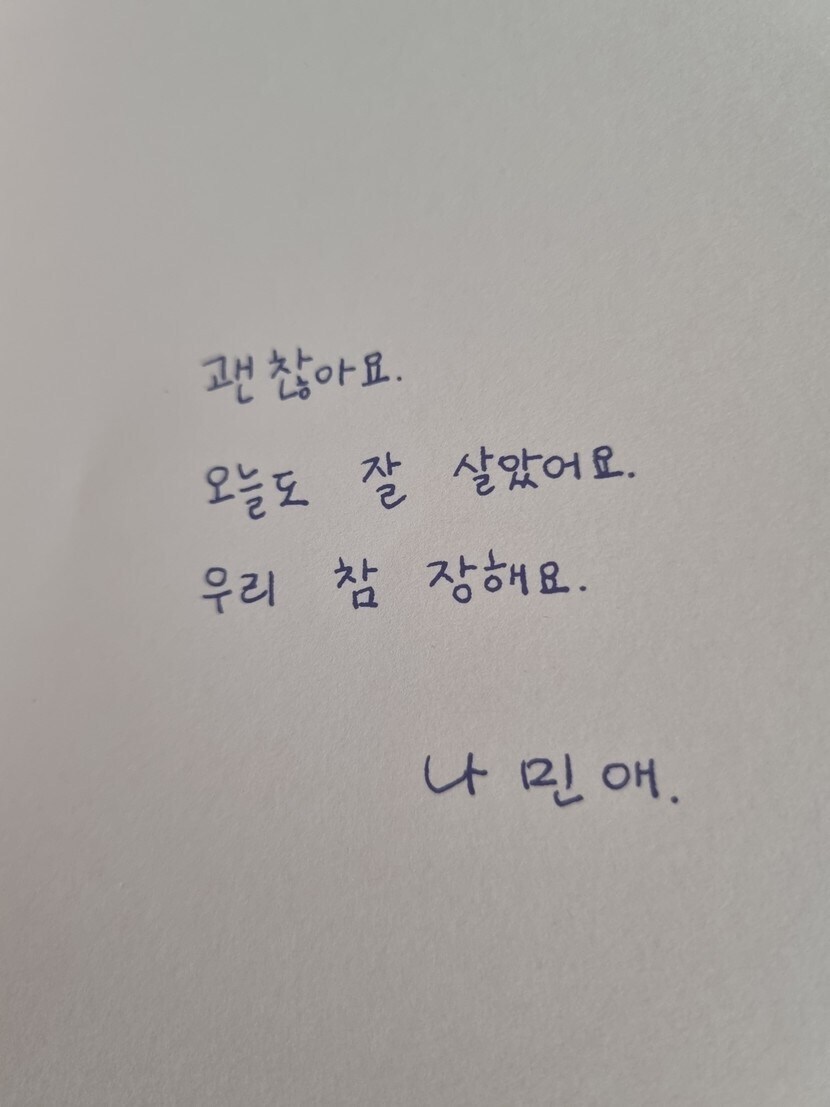 괜찮아요.
오늘도 잘 살았어요.
우리 참 장해요.
나민애.